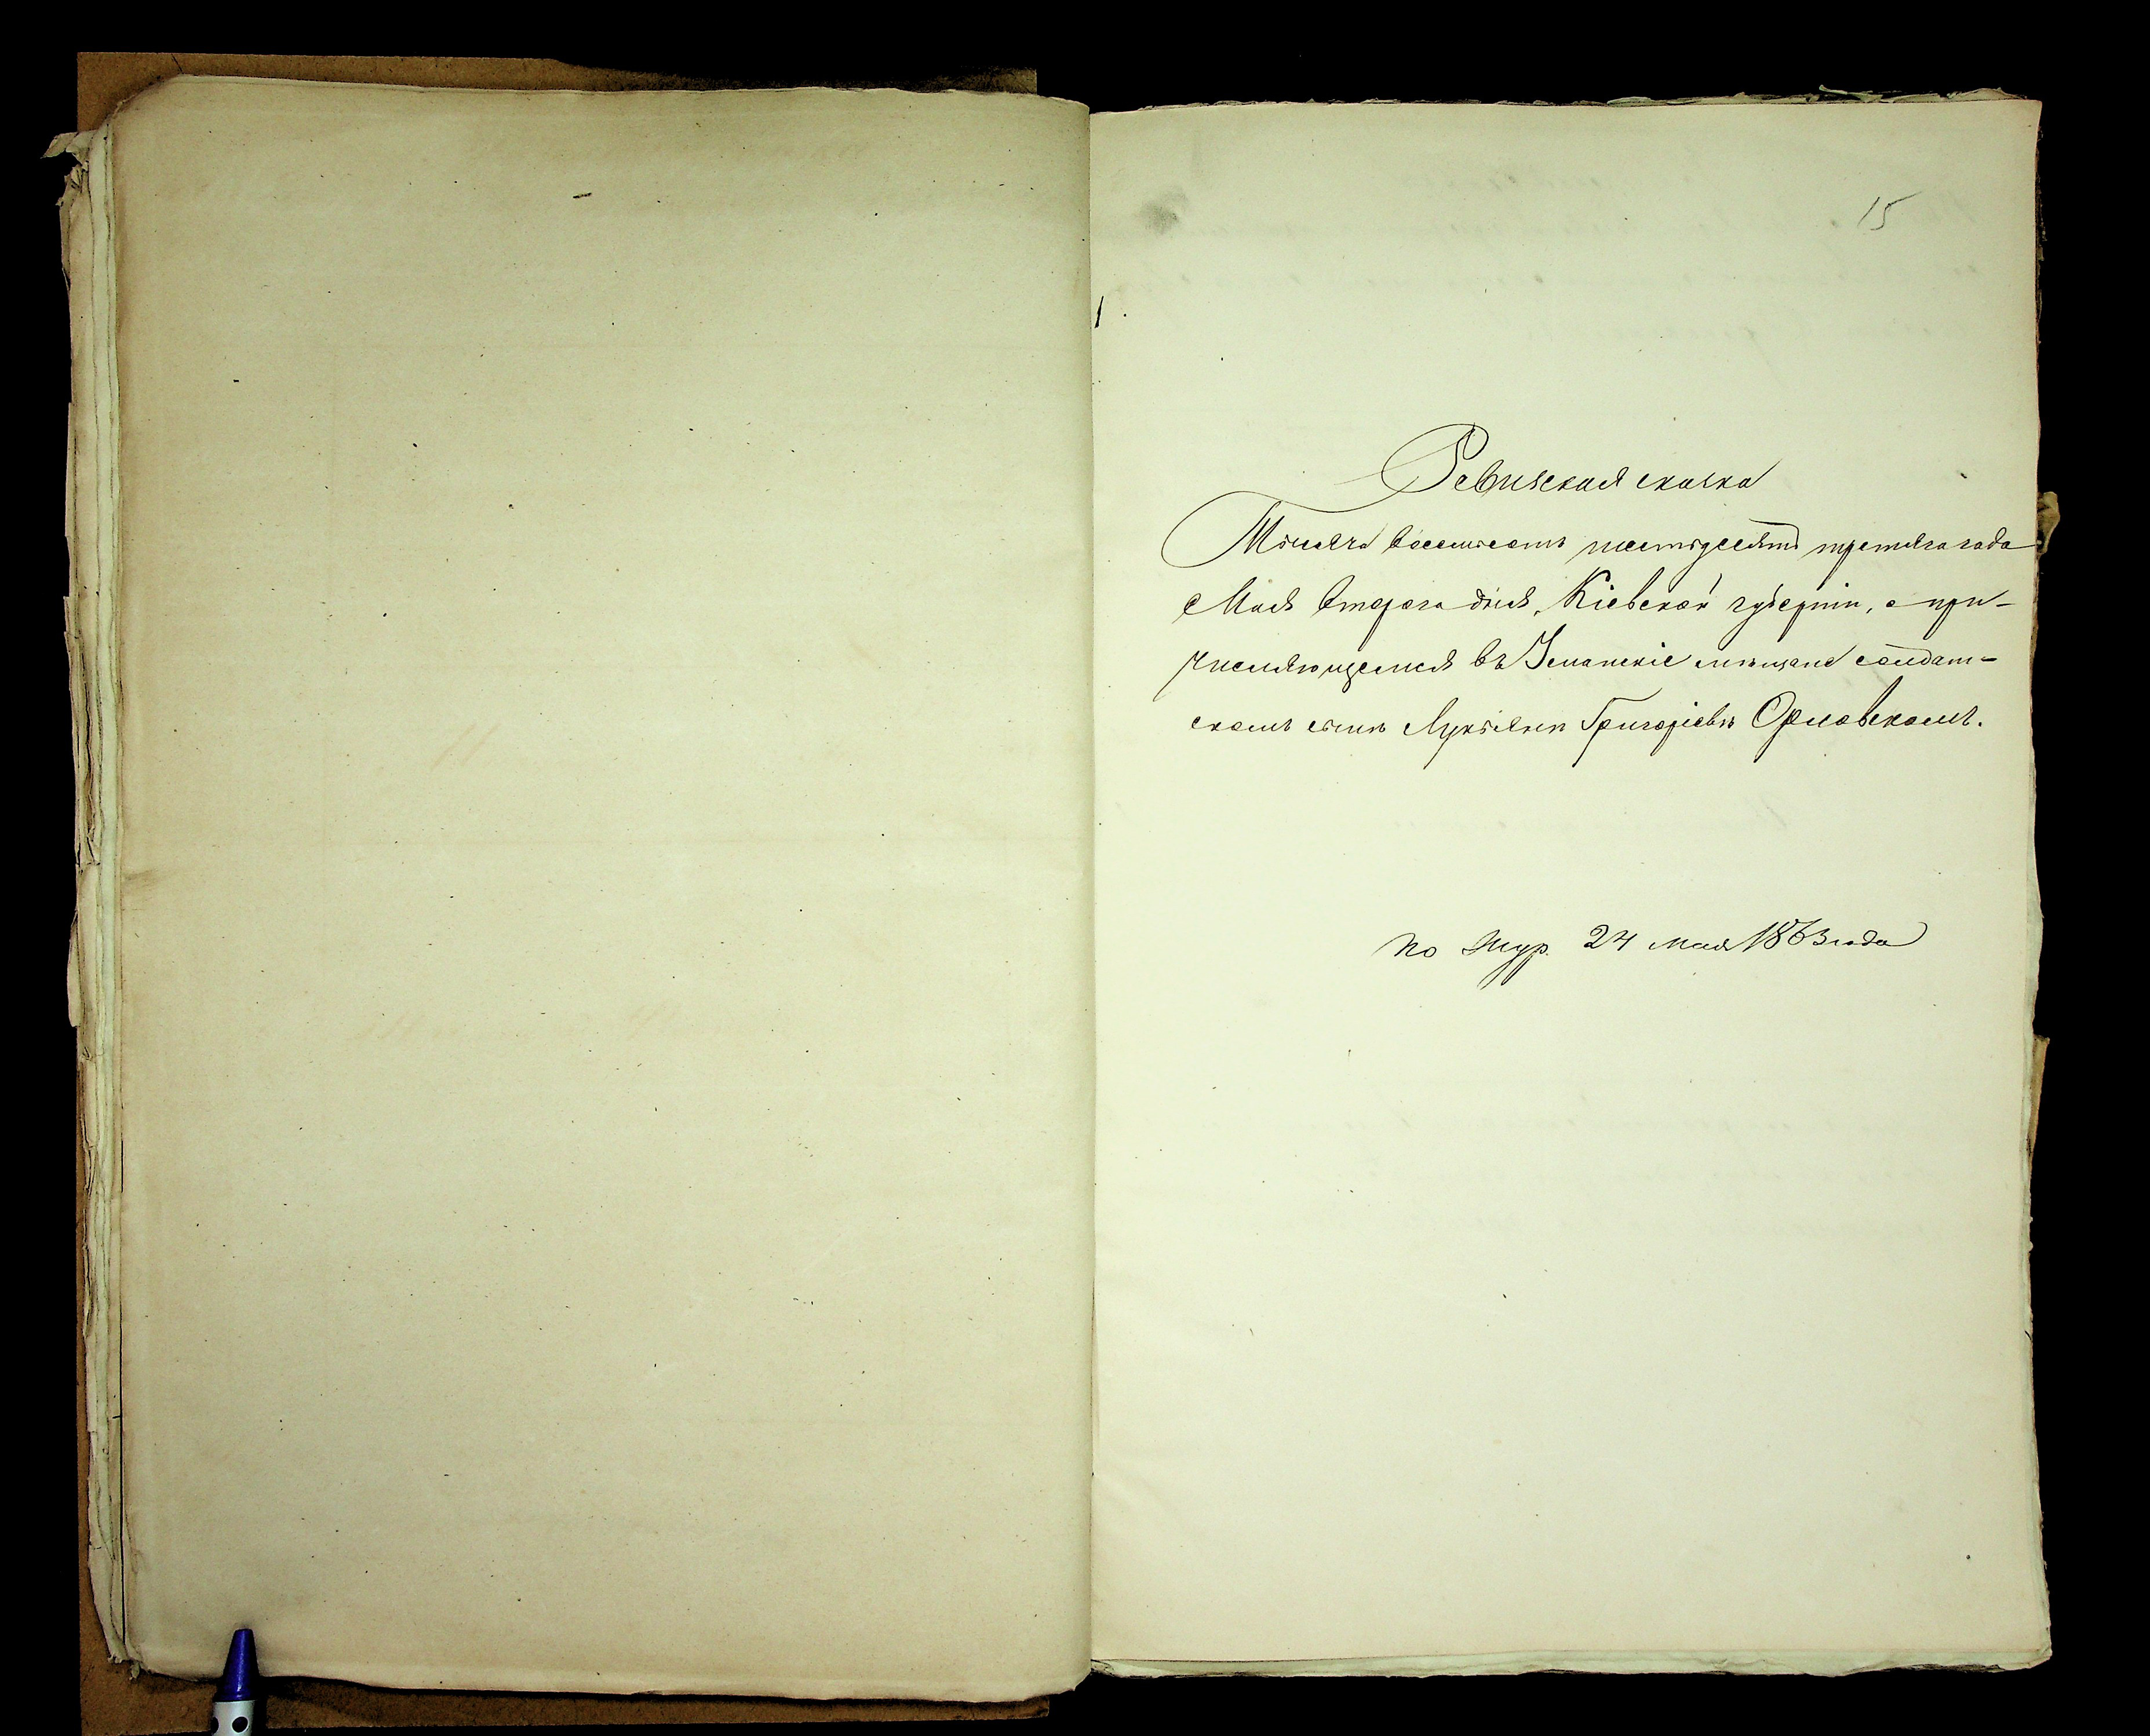 15
Ревизская сказка
Тысяча восемьсотъ шестьдесятъ третьяго года
Мая втораго дня, Кіевской губерніи, о при-
числяющемся въ Уманскіе мѣщане солдат-
скомъ сынѣ Лукьянѣ Григорьевѣ Орловскомъ.
по жур. 24 мая 1863 года